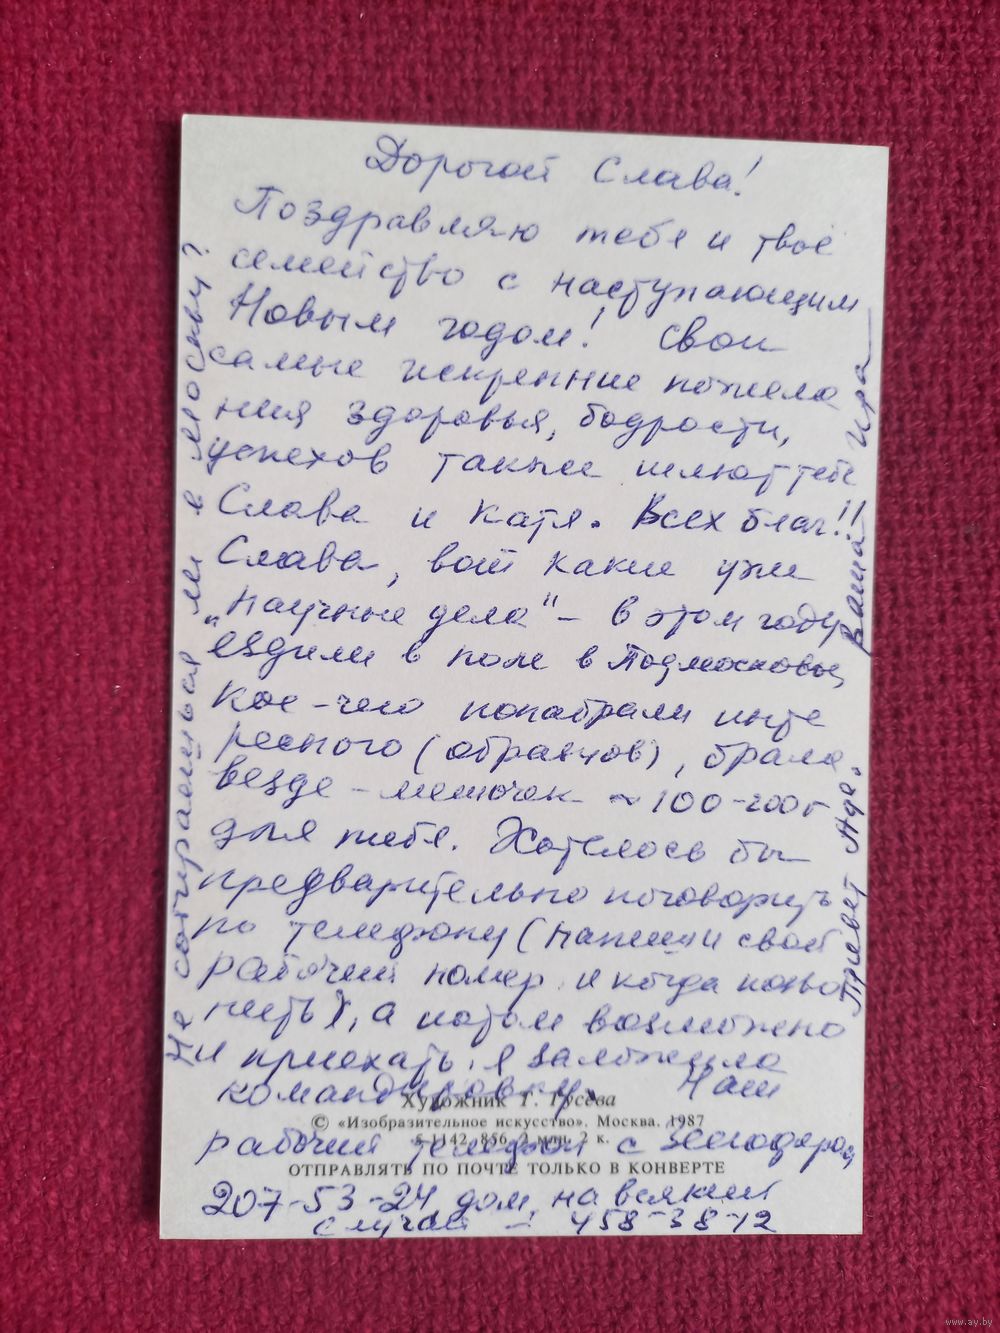 Дорогой Слава!
Поздравляю тебя и твоё
семейство с наступающим
Новым годом! Свои
самые искренние пожела
ния здоровья, бодрости,
успехов также шлют тебе
Слава и Катя. Всех благ!!
Слава, вот какие уже
"научные дела" – в этом году
ездили в поле в Подмосковье,
кое-чего понабрали инте
ресного (образцов), брала
везде – мешочек ~ 100-200г
для тебя. Хотелось бы
предварительно поговорить
по телефону (напиши свой
рабочий номер и когда позво
нить), а потом возможно
и приехать. Я заложила
командировку. Наш
Художник Т. Гусева
© «Изобразительное искусство». Москва. 1987
5-1142. 856. 2 млн. 2 к.
рабочий телефон с
ОТПРАВЛЯТЬ ПО ПОЧТЕ ТОЛЬКО В КОНВЕРТЕ
207-53-24, дом, на всякий
случай – 458-38-12
Не собираешься ли в Москву?
Привет Аде. Ваша Ира
www.ay.by